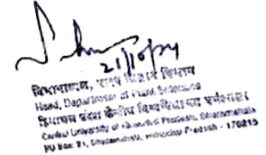 21/10/24
विभागाध्यक्ष, पादप विज्ञान विभाग
Head, Department of Plant Sciences
हिमाचल प्रदेश केन्द्रीय विश्वविद्यालय धर्मशाला
Central University of Himachal Pradesh, Dharamshala
PO Box: 21, Dharamshala, Himachal Pradesh - 176215